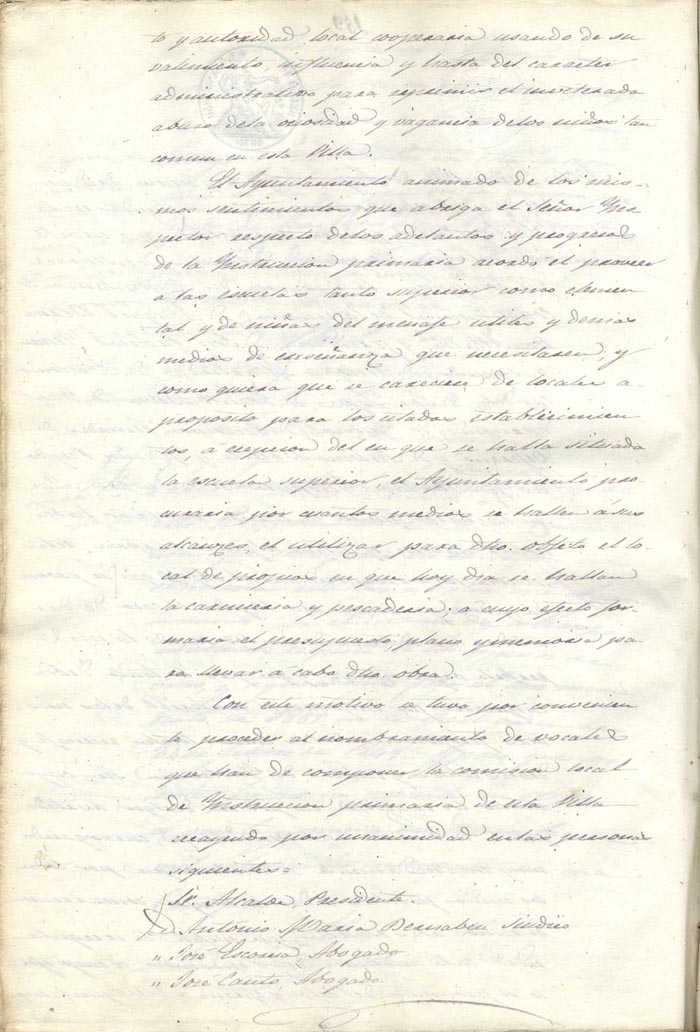 to y autoridad local cooperaria usando de su
valimiento, influencia y hasta del caracter
administrativo para reprimir el inveterado
abuso de la ociosidad y vagancia de los niños tan
comun en esta Villa.
El Ayuntamiento animado de los mis-
mos sentimientos que abriga el Señor Ins-
pector respecto de los adelantos y progresos
de la Instrucion primaria acordó el proveer
a las escuelas tanto superior como elemen
tal y de niñas del menaje utiles y demas
medios de enseñanza que necesitaren, y
como quiera que se careciere de locales a-
proposito para los citados establecimien
tos, á excepcion del en que se halla situada
la escuela superior, el Ayuntamiento pro
curaria por cuantos medios se hallen á sus
alcanzes, el utilizar para dho. objeto el lo-
cal de propios en que hoy dia se hallan
la carniceria y pescaderia; á cuyo efecto for-
maria el presupuesto, plano y memoria pa-
ra llevar á cabo dha. obra.
Con este motivo se tuvo por convenien
te proceder al nombramiento de vocales
que han de componer la comision local
de Instrucion primaria de esta Villa
recayendo por unanimidad en las personas
siguientes=
Sr. Alcalde, Presidente.
D. Antonio Maria Sindico
" José Escoria, Abogado
" José Cantó, Abogado